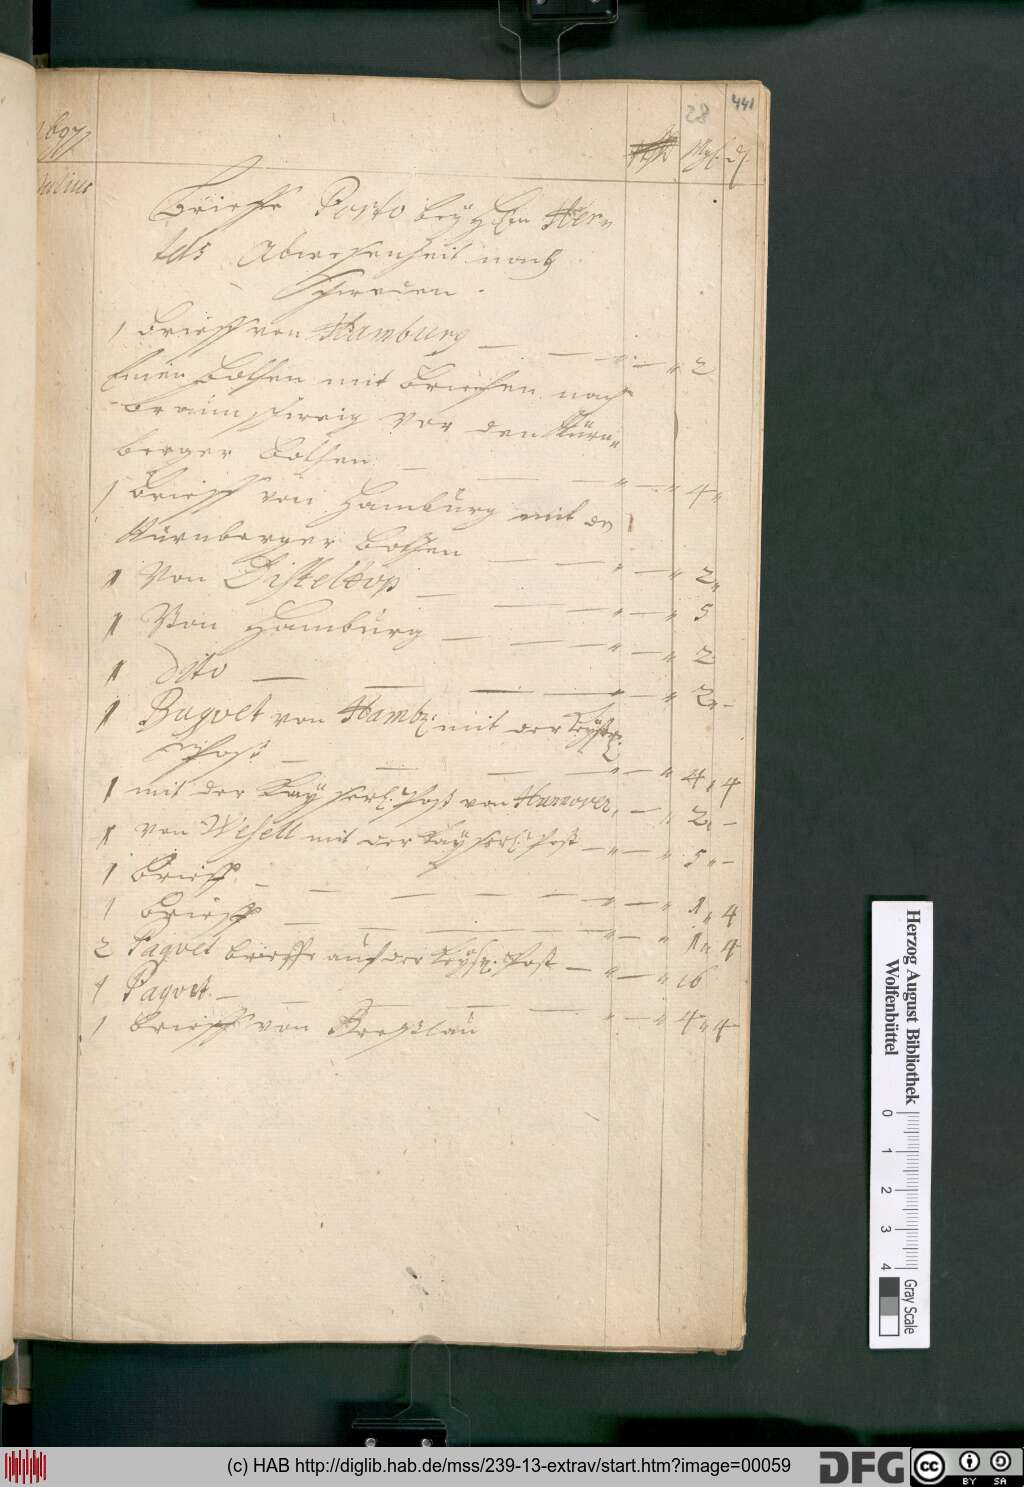 28 441
1697
Mgl. d.
Julius
Brieffe Porto bey H. Ern Her=
tels Abwesenheit nach
Schweden.
1 Brieff von Hamburg — — " — " 2
Einen Bothen mit Briefen nach
Braunschweig vor den Nürn=
berger Bothen — — — " — " 4 "
1 Brieff von Hamburg mit de
Nürnberger Bothen — — " — " 2 "
1 Von Disteltop — — — " — " 5
1 Von Hamburg — — — " — " 2
1 dito — — — — " — " 2 " —
1 Paqvet von Hamb: mit der Keyßl:
Post — — — — " — " 4 " 4
1 mit der Kayserl. Post von Hannover, — " 2 " —
1 von Wesell mit der Kayserl. Post — " — " 5 " —
1 Brieff — — — — — " — " 1 " 4
1 Brieff — — — — — " — " 1 " 4
2 Paqvet Brieffe auf der Keyßl. Post — " — " 16
1 Paqvet — — — — — " — " 4 " 4 —
1 Brieff von Breßlau
Herzog August Bibliothek
Wolfenbüttel
0 1 2 3 4
Gray Scale
(c) HAB http://diglib.hab.de/mss/239-13-extrav/start.htm?image=00059
DFG
cc BY SA